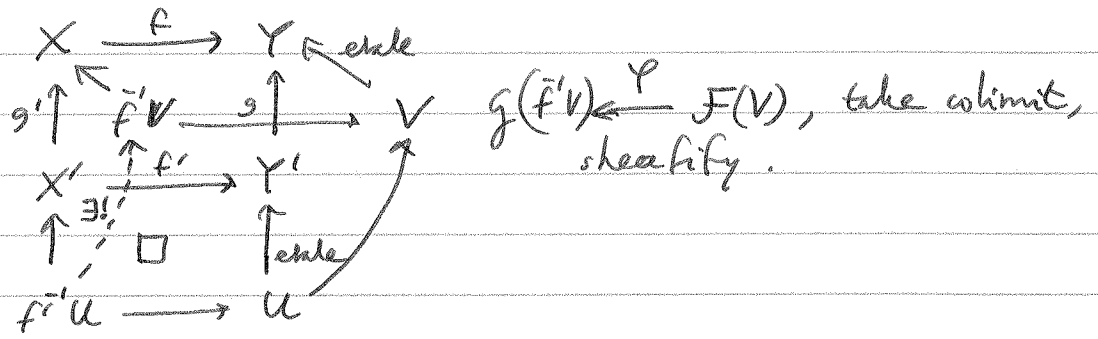 X f Y etale
g' f⁻¹V g V G(f⁻¹V) φ F(V), take colimit,
sheafify.
X' f' Y'
∃! □ etale
f'⁻¹U U